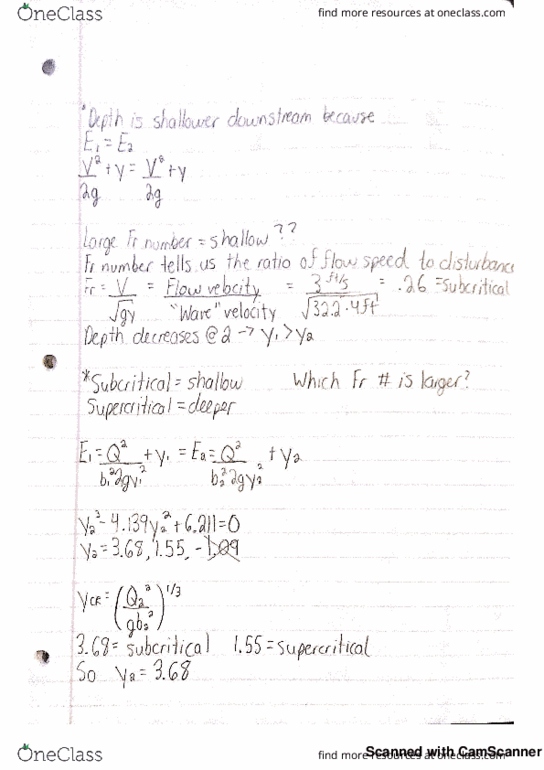 OneClass
find more resources at oneclass.com
*Depth is shallower downstream because
E₁ = E₂
V²/2g + y = V²/2g + y
Large Fr number = shallow??
Fr number tells us the ratio of flow speed to disturbance
Fr = V/√gy = Flow velocity/"Wave" velocity = 3 ft/s/√32.2·4ft = .26 = subcritical
Depth decreases @ 2 → y₁ > y₂
*Subcritical = shallow Which Fr # is larger?
Supercritical = deeper
E₁ = Q²/b₁²2gy₁² + y₁ = E₂ = Q²/b₂²2gy₂² + y₂
y₂³ - 4.139y₂² + 6.211 = 0
y₂ = 3.68, 1.55, -1.09
yCR = (Q₂²/gb₂²)^1/3
3.68 = subcritical 1.55 = supercritical
So y₂ = 3.68
OneClass
find more resources at oneclass.com
Scanned with CamScanner